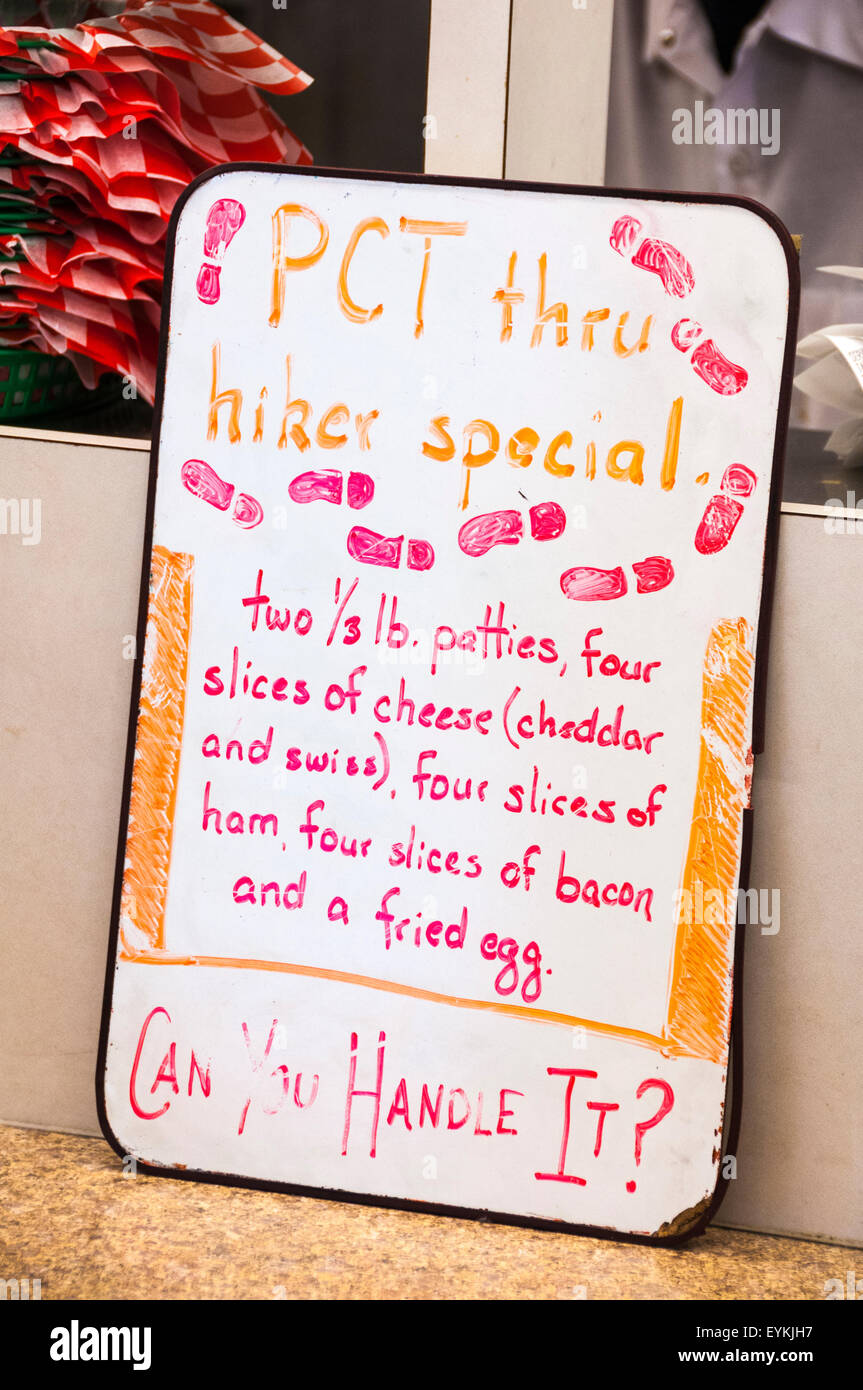 PCT thru
hiker special.
two 1/3 lb. patties, four
slices of cheese (cheddar
and swiss), four slices of
ham, four slices of bacon
and a fried egg.
CAN YOU HANDLE IT?
alamy
alamy
Image ID: EYKJH7
www.alamy.com